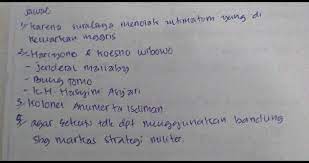 Jawab
1. Karena surabaya menolak ultimatum yang di
keluarkan inggris
2. Hariyono & koesno wibowo
- Jenderal mallaby
- Bung Tomo
- K.H. Hasyim Asy'ari
3. Kolonel Anumerta Isdiman.
5. agar sekutu tdk dpt menggunakan bandung
sbg markas strategi militer.